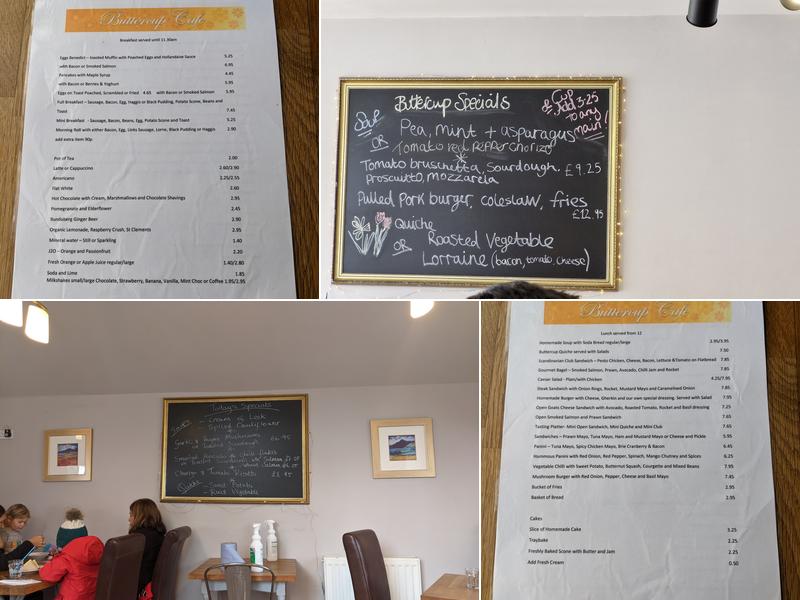 Buttercup Cafe
Breakfast served until 11.30am
Eggs Benedict – toasted Muffin with Poached Eggs and Hollandaise Sauce 5.25
with Bacon or Smoked Salmon 6.95
Pancakes with Maple Syrup 4.45
with Bacon or Berries & Yoghurt 5.95
Eggs on Toast Poached, Scrambled or Fried 4.65 with Bacon or Smoked Salmon 5.95
Full Breakfast – Sausage, Bacon, Egg, Haggis or Black Pudding, Potato Scone, Beans and
Toast 7.45
Mini Breakfast - Sausage, Bacon, Beans, Egg, Potato Scone and Toast 5.25
Morning Roll with either Bacon, Egg, Links Sausage, Lorne, Black Pudding or Haggis 2.90
add extra item 90p
Pot of Tea 2.00
Latte or Cappuccino 2.60/2.90
Americano 2.25/2.55
Flat White 2.60
Hot Chocolate with Cream, Marshmallows and Chocolate Shavings 2.95
Pomegranate and Elderflower 2.45
Bundaberg Ginger Beer 2.90
Organic Lemonade, Raspberry Crush, St Clements 2.95
Mineral water – Still or Sparkling 1.40
J2O – Orange and Passionfruit 2.20
Fresh Orange or Apple Juice regular/large 1.40/2.80
Soda and Lime 1.85
Milkshakes small/large Chocolate, Strawberry, Banana, Vanilla, Mint Choc or Coffee 1.95/2.95
Buttercup Specials
Cup
of
Add 3.25
to any
main!
Soup
Pea, mint + asparagus
OR
Tomato red pepper chorizo
Tomato bruschetta, Sourdough, £9.25
Proscuitto, mozzarella
Pulled Pork burger, coleslaw, fries
£12.95
Quiche
Roasted Vegetable
OR
Lorraine (bacon, tomato, cheese)
Today's Specials
Cream of Leek
Spiced Cauliflower
Mushrooms
on Toasted Sourdough £6.95
Smoked Avocado & Chilli flakes
on Toasted Sourdough w/ Salmon
Chorizo & Tomato Risotto £8.95
Quiche
- Sweet Potato
- Roast Vegetable
Buttercup Cafe
Lunch served from 12
Homemade Soup with Soda Bread regular/large 2.95/3.95
Buttercup Quiche served with Salads 7.50
Scandinavian Club Sandwich – Pesto Chicken, Cheese, Bacon, Lettuce &Tomato on Flatbread 7.85
Gourmet Bagel – Smoked Salmon, Prawn, Avocado, Chilli Jam and Rocket 7.85
Caesar Salad - Plain/with Chicken 4.25/7.95
Steak Sandwich with Onion Rings, Rocket, Mustard Mayo and Caramelised Onion 7.85
Homemade Burger with Cheese, Gherkin and our own special dressing. Served with Salad 7.95
Open Goats Cheese Sandwich with Avocado, Roasted Tomato, Rocket and Basil dressing 7.25
Open Smoked Salmon and Prawn Sandwich 7.65
Tasting Platter- Mini Open Sandwich, Mini Quiche and Mini Club 7.65
Sandwiches – Prawn Mayo, Tuna Mayo, Ham and Mustard Mayo or Cheese and Pickle 5.95
Panini – Tuna Mayo, Spicy Chicken Mayo, Brie Cranberry & Bacon 6.45
Hummous Panini with Red Onion, Red Pepper, Spinach, Mango Chutney and Spices 6.25
Vegetable Chilli with Sweet Potato, Butternut Squash, Courgette and Mixed Beans 7.95
Mushroom Burger with Red Onion, Pepper, Cheese and Basil Mayo 7.45
Bucket of Fries 2.95
Basket of Bread 2.95
Cakes
Slice of Homemade Cake 3.25
Traybake 2.25
Freshly Baked Scone with Butter and Jam 2.25
Add Fresh Cream 0.50